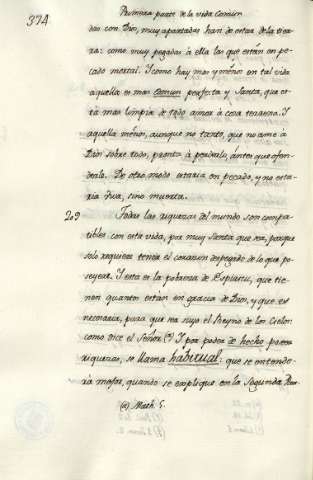 374
Primera parte de la vida Comun
das con Dios, muy apartadas han de estar de la tier-
ra: como muy pegadas à ella las que están en pe-
cado mortal. Y como hay mas y ménos en tal vida
aquella es mas Comun perfecta y Santa, que es-
tá mas limpia de todo amor à cosa terrena. Y
aquella ménos, aunque no tanto, que no ame à
Dios sobre todo, pronta à perderlo, ántes que ofen-
derle. De otro modo estaria en pecado, y no esta-
ria viva, sino muerta.
29 Todas las riquezas del mundo son compa-
tibles con esta vida, por muy Santa que sea, porque
solo requiere tener el corazon despegado de lo que po-
seyere. Y esta es la pobreza de Espiritu, que tie-
nen quantos están en gracia de Dios, y que es
necesaria, para que sea suyo el Reyno de los Cielos:
como dice el Señor. (a) Y por poder de hecho poseer
riquezas, se llama habitual: que se entende-
ra mejor, quando se explique en la Segunda Par-
(a) Math. 5.